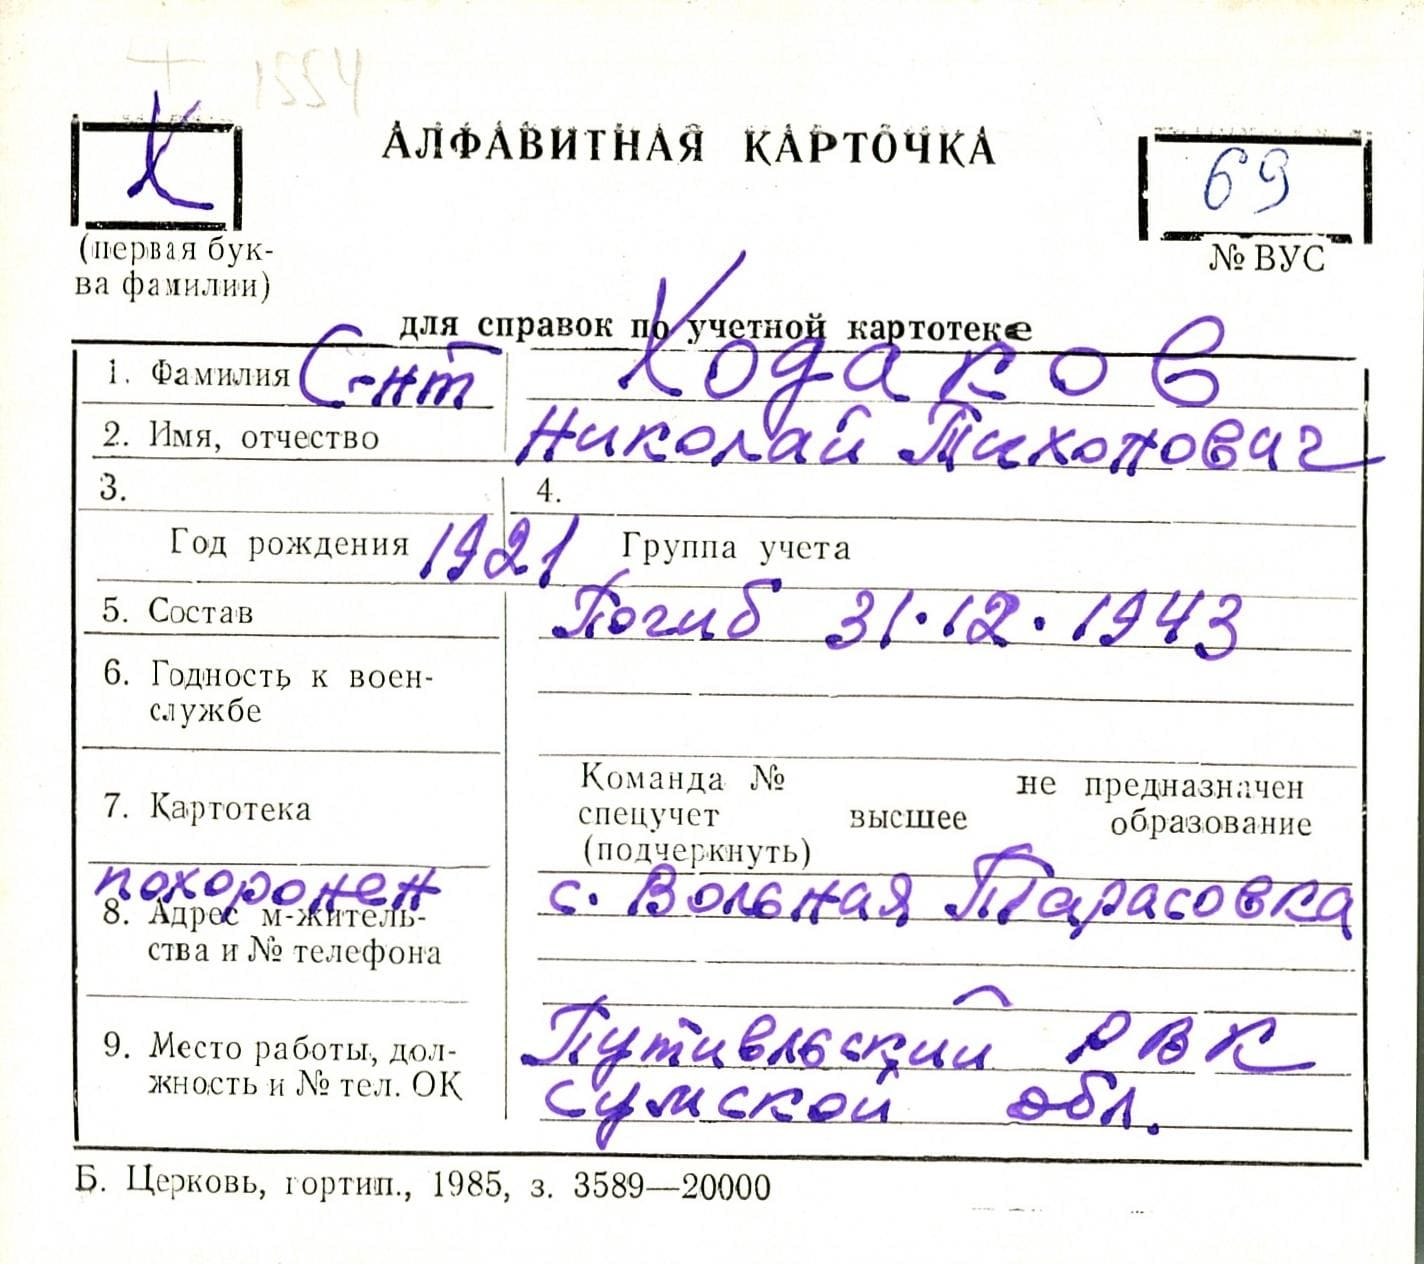 1334
Х
АЛФАВИТНАЯ КАРТОЧКА
69
(первая бук-
ва фамилии)
№ ВУС
для справок по учетной картотеке
1. Фамилия С-нт Ходаков
2. Имя, отчество Николай Тихонович
3. 4.
Год рождения 1921 Группа учета
5. Состав Погиб 31.12.1943
6. Годность к воен-
службе
Команда № не предназначен
7. Картотека спецучет высшее образование
(подчеркнуть)
похоронен с. Вольная Тарасовка
8. Адрес м-житель-
ства и № телефона
9. Место работы, дол- Путивльский РВК
жность и № тел. ОК Сумской обл.
Б. Церковь, гортип., 1985, з. 3589—20000